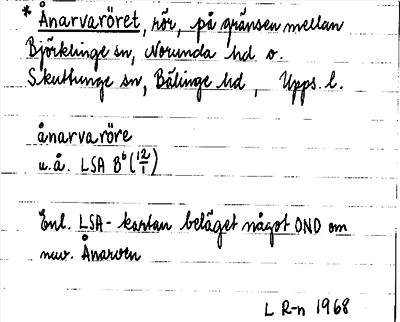 * Ånarvaröret, rör, på gränsen mellan
Björklinge sn, Norunda hd o.
Skuttunge sn, Bälinge hd, Upps. l.
ånarvaröre
u.å. LSA B⁶ (12/1)
Enl. LSA-kartan beläget något OND om
nuv. Ånarven
L R-n 1968